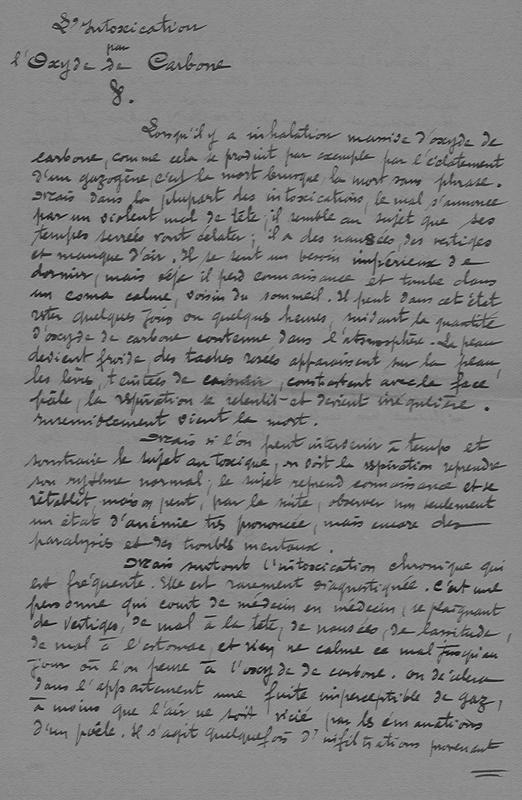 L'Intoxication
par
l'Oxyde de Carbone
Lorsqu'il y a inhalation massive d'oxyde de
carbone, comme cela se produit par exemple par l'éclatement
d'un gazogène, c'est la mort brusque, la mort sans phrase.
Mais dans la plupart des intoxications, le mal s'annonce
par un violent mal de tête ; il semble au sujet que ses
tempes serrées vont éclater ; il a des nausées, des vertiges
et manque d'air. Il se sent un besoin impérieux de
dormir, mais déjà il perd connaissance et tombe dans
un coma calme, voisin du sommeil. Il peut dans cet état
rester quelques jours ou quelques heures, suivant la quantité
d'oxyde de carbone contenue dans l'atmosphère. La peau
devient froide, des taches rosées apparaissent sur la peau,
les lèvres, teintées de carmin, contrastent avec la face
pâle, la respiration se ralentit et devient irrégulière.
Insensiblement vient la mort.
Mais si l'on peut intervenir à temps et
soustraire le sujet au toxique, on voit la respiration reprendre
son rythme normal, le sujet reprend connaissance et se
rétablit, mais on peut, par la suite, observer non seulement
un état d'anémie très prononcée, mais encore des
paralysies et des troubles mentaux.
Mais surtout l'intoxication chronique qui
est fréquente. Elle est rarement diagnostiquée. C'est une
personne qui court de médecin en médecin, se plaignant
de vertiges, de mal à la tête, de nausées, de lassitude,
de mal à l'estomac, et rien ne calme ce mal jusqu'au
jour où l'on pense à l'oxyde de carbone. On décèlera
dans l'appartement une fuite imperceptible de gaz,
à moins que l'air ne soit vicié par les émanations
d'un poêle. Il s'agit quelquefois d'infiltrations provenant